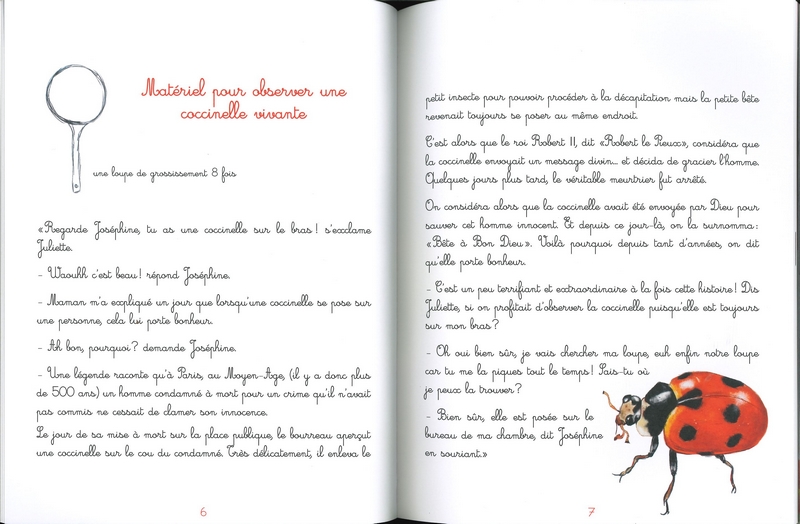 Matériel pour observer une
coccinelle vivante
une loupe de grossissement 8 fois
«Regarde Joséphine, tu as une coccinelle sur le bras! s'exclame
Juliette.
- Waouhh c'est beau! répond Joséphine.
- Maman m'a expliqué un jour que lorsqu'une coccinelle se pose sur
une personne, cela lui porte bonheur.
- Ah bon, pourquoi? demande Joséphine.
- Une légende raconte qu'à Paris, au Moyen-Age, (il y a donc plus
de 500 ans) un homme condamné à mort pour un crime qu'il n'avait
pas commis ne cessait de clamer son innocence.
Le jour de sa mise à mort sur la place publique, le bourreau aperçut
une coccinelle sur le cou du condamné. Très délicatement, il enleva le
6
petit insecte pour pouvoir procéder à la décapitation mais la petite bête
revenait toujours se poser au même endroit.
C'est alors que le roi Robert II, dit «Robert le Pieux», considéra que
la coccinelle envoyait un message divin... et décida de gracier l'homme.
Quelques jours plus tard, le véritable meurtrier fut arrêté.
On considéra alors que la coccinelle avait été envoyée par Dieu pour
sauver cet homme innocent. Et depuis ce jour-là, on la surnomma:
«Bête à Bon Dieu». Voilà pourquoi depuis tant d'années, on dit
qu'elle porte bonheur.
- C'est un peu terrifiant et extraordinaire à la fois cette histoire! Dis
Juliette, si on profitait d'observer la coccinelle puisqu'elle est toujours
sur mon bras?
- Oh oui bien sûr, je vais chercher ma loupe, euh enfin notre loupe
car tu me la piques tout le temps! Sais-tu où
je peux la trouver?
- Bien sûr, elle est posée sur le
bureau de ma chambre, dit Joséphine
en souriant.»
7